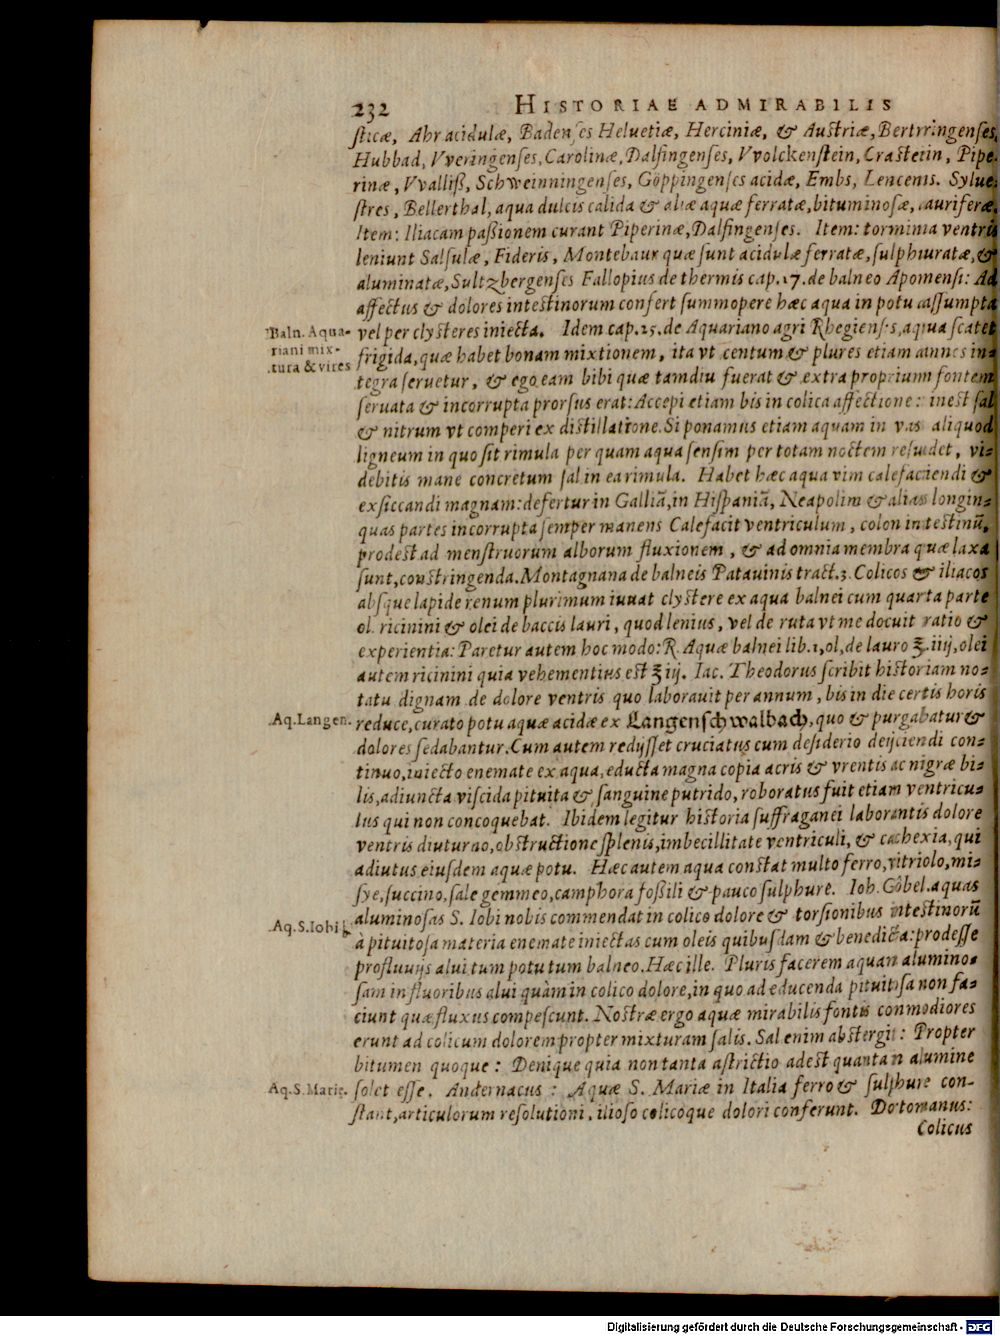 232 HISTORIAE ADMIRABILIS
sticæ, Ahr acidulæ, Badenses Helvetiæ, Herciniæ, & Austriæ, Bertrringenses,
Hubbad, Vveringenses, Carolinæ, Dalfingenses, Vvolckenstein, Crasterin, Pipe-
rinæ, Vvalliß, Schweinningenses, Göppingenses acidæ, Embs, Lencens. Sylue-
stres, Bellerthal, aqua dulcis calida & aliæ aquæ ferratæ, bituminosæ, auriferæ.
Item: Iliacam paßionem curant Piperinæ, Dalfingenses. Item: tormina ventris
leniunt Salsulæ, Fideris, Montebaur quæ sunt acidulæ ferratæ, sulphuratæ, &
aluminatæ, Sultzbergenses Fallopius de thermis cap. 17. de balneo Apomensi: Ad
affectus & dolores intestinorum confert summopere hæc aqua in potu assumpta
Baln. Aqua-
riani mix-
tura & vires
vel per clysteres iniecta. Idem cap. 25. de Aquariano agri Rhegiensis, aqua scatet
frigida, quæ habet bonam mixtionem, ita vt centum & plures etiam annos in-
tegra seruetur, & ego eam bibi quæ tamdiu fuerat & extra proprium fontem
seruata & incorrupta prorsus erat: Accepi etiam bis in colica affectione: inest sal
& nitrum vt comperi ex distillatione. Si ponamus etiam aquam in vas aliquod
ligneum in quo sit rimula per quam aqua sensim per totam noctem resudet, vi-
debitis mane concretum sal in ea rimula. Habet hæc aqua vim calefaciendi &
exsiccandi magnam: defertur in Galliã, in Hispaniã, Neapolim & alias longin-
quas partes incorrupta semper manens Calefacit ventriculum, colon intestinũ,
prodest ad menstruorum alborum fluxionem, & ad omnia membra quæ laxa
sunt, constringenda. Montagnana de balneis Patauinis tract. 3. Colicos & iliacos
absque lapide renum plurimum iuuat clystere ex aqua balnei cum quarta parte
ol. ricinini & olei de baccis lauri, quod lenius, vel de ruta vt me docuit ratio &
experientia: Paretur autem hoc modo: ℞. Aquæ balnei lib. 1, ol, de lauro ℥. iiij, olei
autem ricinini quia vehementius est ℥ iij. Iac. Theodorus scribit historiam no-
tatu dignam de dolore ventris quo laborauit per annum, bis in die certis horis
Aq. Langen.
reduce, curato potu aquæ acidæ ex Langenschwalbach, quo & purgabatur &
dolores sedabantur. Cum autem redijsset cruciatus cum desiderio deijciendi con-
tinuo, iniecto enemate ex aqua, educta magna copia acris & vrentis ac nigræ bi-
lis, adiuncta viscida pituita & sanguine putrido, roboratus fuit etiam ventricu-
lus qui non concoquebat. Ibidem legitur historia suffraganei laborantis dolore
ventris diuturno, obstructione splenis, imbecillitate ventriculi, & cachexia, qui
adiutus eiusdem aquæ potu. Hæc autem aqua constat multo ferro, vitriolo, mi-
sye, succino, sale gemmeo, camphora foßili & pauco sulphure. Ioh. Göbel. aquas
Aq. S. Iobi
aluminosas S. Iobi nobis commendat in colico dolore & torsionibus intestinorũ
à pituitosa materia enemate iniectas cum oleis quibusdam & benedicta: prodesse
profluuijs alui tum potu tum balneo. Hæc ille. Pluris facerem aquam alumino-
sam in fluoribus alui quàm in colico dolore, in quo ad educenda pituitosa non fa-
ciunt quæ fluxus compescunt. Nostræ ergo aquæ mirabilis fontis conmodiores
erunt ad colicum dolorem propter mixturam salis. Sal enim abstergit: Propter
bitumen quoque: Denique quia non tanta astrictio adest quanta in alumine
Aq. S. Marię.
solet esse. Andernacus: Aquæ S. Mariæ in Italia ferro & sulphure con-
stant, articulorum resolutioni, ilioso colicoque dolori conferunt. Dotomanus:
Colicus
Digitalisierung gefördert durch die Deutsche Forschungsgemeinschaft - DFG